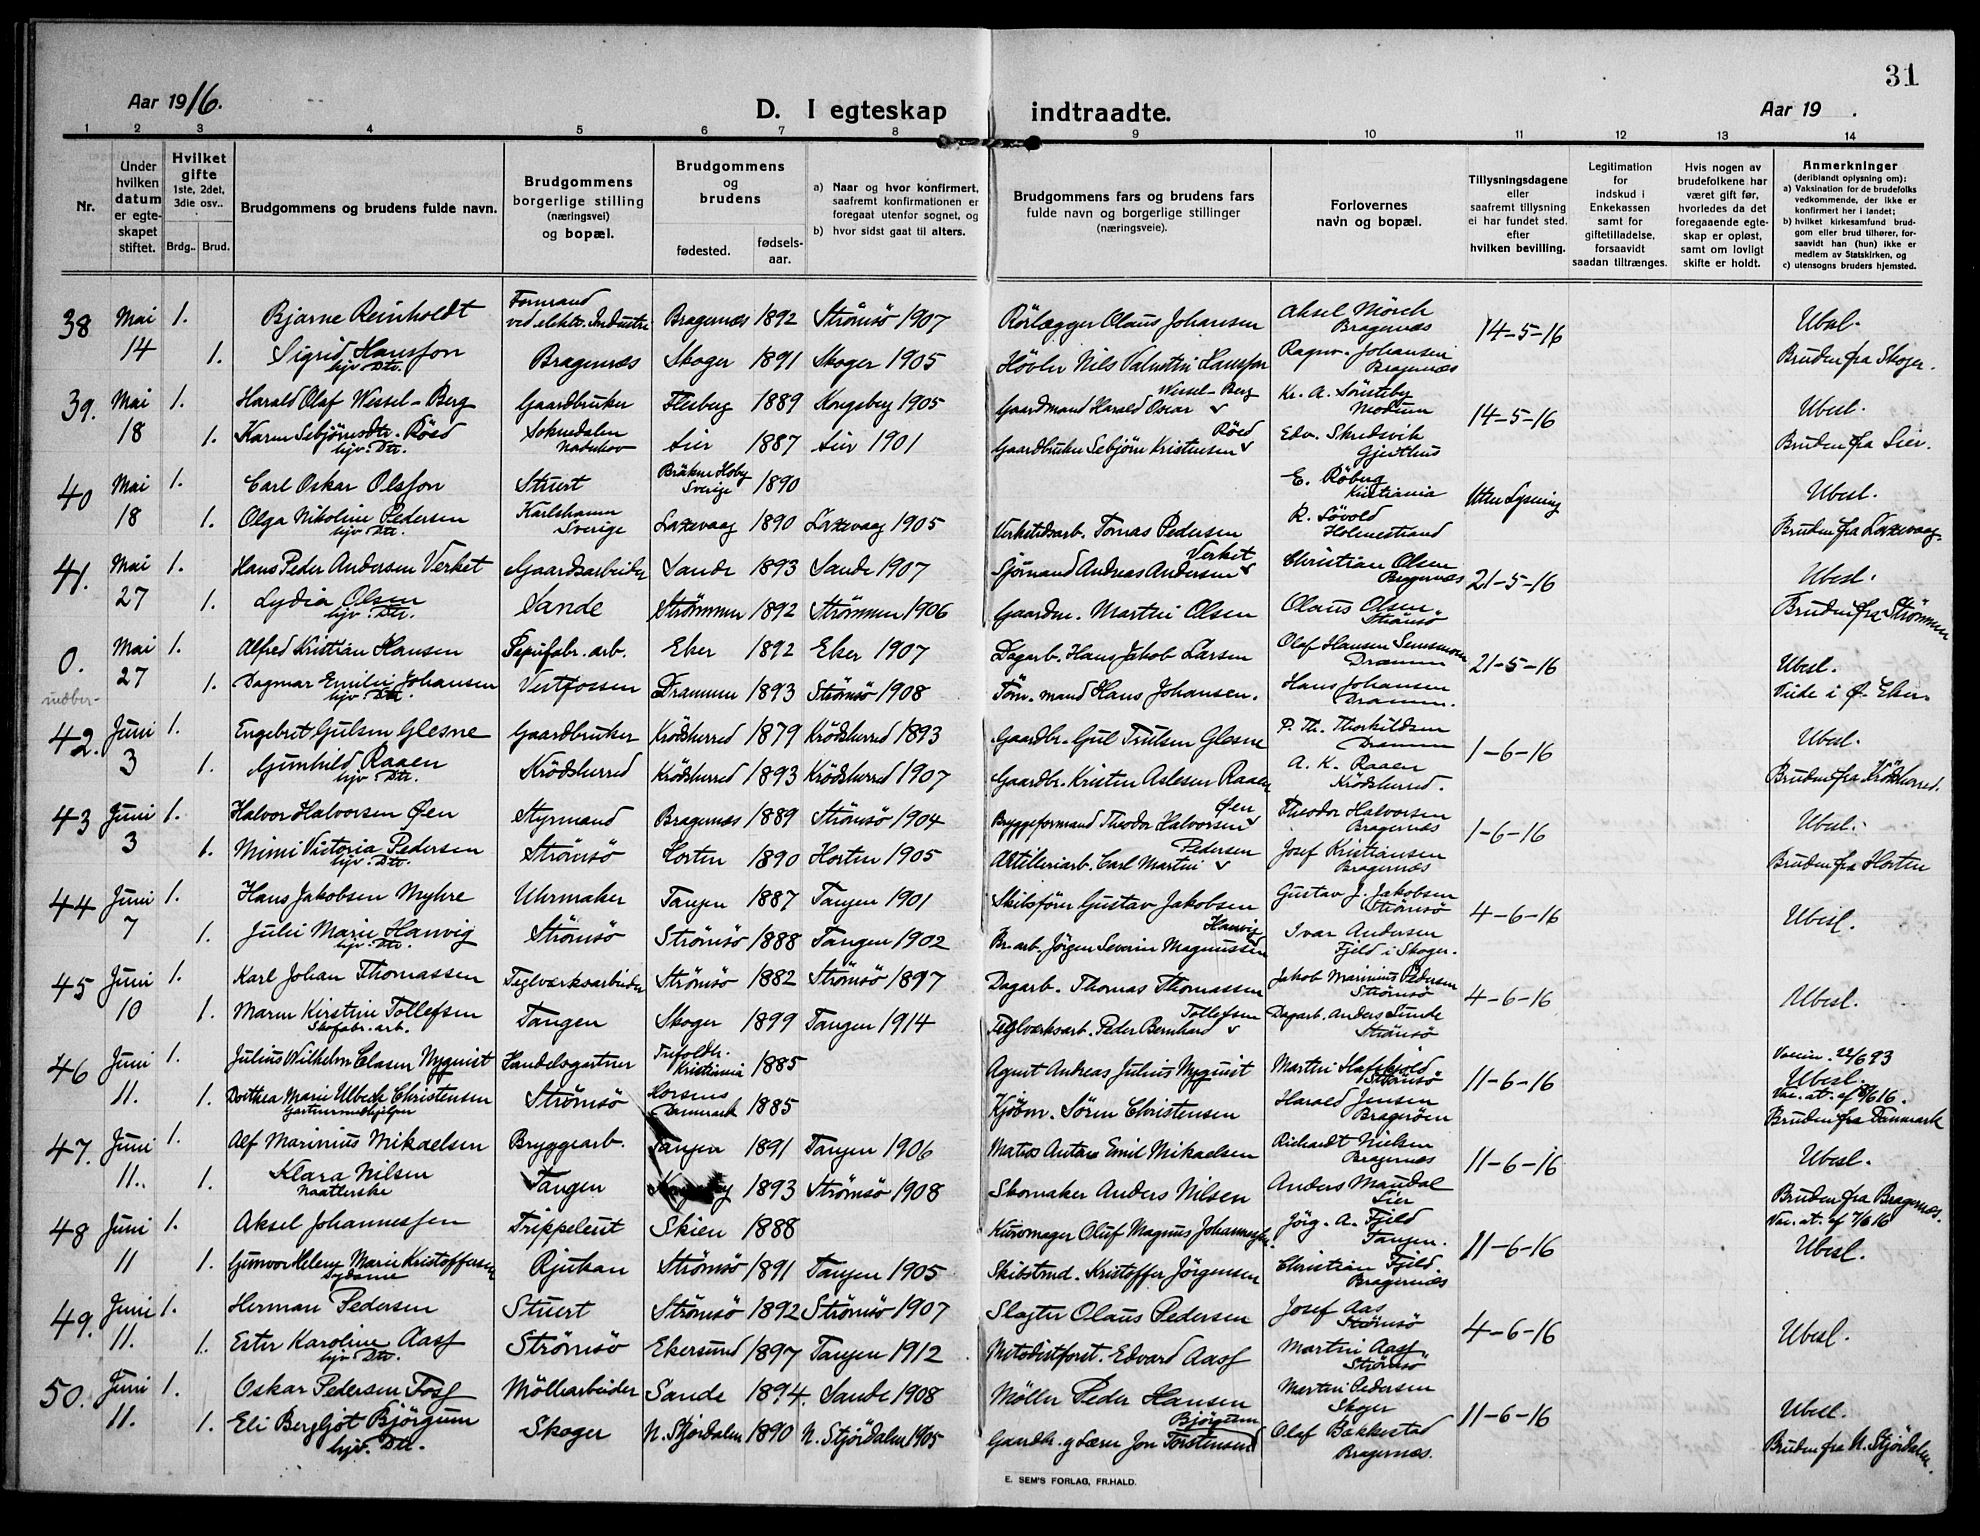 31
Aar 1916.
D. I egteskap indtraadte.
Aar 19 .
1 2 3 4 5 6 7 8 9 10 11 12 13 14
Nr.
Under hvilken datum er egte-skapet stiftet.
Hvilket gifte
1ste, 2det, 3die osv..
Brdg.. Brud.
Brudgommens og brudens fulde navn.
Brudgommens borgerlige stilling (næringsvei) og bopæl.
Brudgommens og brudens
fødested. fødsels-aar.
a) Naar og hvor konfirmert, saafremt konfirmationen er foregaat utenfor sognet, og
b) hvor sidst gaat til alters.
Brudgommens fars og brudens fars fulde navn og borgerlige stillinger (næringsveie).
Forlovernes navn og bopæl.
Tillysningsdagene eller saafremt tillysning ei har fundet sted. efter hvilken bevilling.
Legitimation for indskud i Enkekassen samt for giftetilladelse, forsaavidt saadan tiltrænges.
Hvis nogen av brudefolkene har været gift før, hvorledes da det foregaaende egte-skap er opløst, samt om lovligt skifte er holdt.
Anmerkninger (deriblandt oplysning om):
a) Vaksination for de brudefolks vedkommende, der ikke er konfirmert her i landet;
b) hvilket kirkesamfund brud-gom eller brud tilhører, for-saavidt han (hun) ikke er medlem av Statskirken, og
c) utensogns bruders hjemsted.
38 Mai 14 1. Bjarne Reinholdt Formand ved elektr. Industri Bragernæs 1892 Strömsö 1907 Rörlægger Claus Johansen Aksel Mörch Bragernæs 14-5-16 Ubesl.
1. Sigrid Hansson hjv. Dtr. Bragernæs Skoger 1891 Skoger 1905 Hövler Nils Valentin Hansson Ragnv. Johansen Bragernæs Bruden fra Skoger.
39. Mai 18 1. Harald Olaf Wessel-Berg Gaardbruker Flesberg 1889 Kongsberg 1905 Gaardmand Harald Oscar Wessel-Berg Kr. A. Sönsteby Modum 14-5-16 Ubesl.
1. Karen Sebjörnsdtr. Röed hjv. Dtr. Soknedalen Lier 1887 Lier 1901 Gaardbruker Sebjörn Kristensen Röed Edv. Skredsvik Gjeithus Bruden fra Lier.
40 Mai 18 1. Carl Oskar Olsson Stuert Bräkne Hoby Sverige 1890 E. Röberg Kristiania Uten Lysning Ubesl.
1. Olga Nikoline Pedersen hjv. Dtr. Karlshamn Sverige Laxevaag 1890 Laxevaag 1905 Verkstedsarb. Tomas Pedersen R. Sövold Holmestrand Bruden fra Laxevaag.
41. Mai 27 1. Hans Peder Andersen Verket Gaardsarbeider Sande 1893 Sande 1907 Sjömand Andreas Andersen Verket Christian Olsen Bragernæs 21-5-16 Ubesl.
1. Lydia Olsen hjv. Dtr. Sande Strömmen 1892 Strömmen 1906 Gaardm. Martin Olsen Olaus Olsen Strömsö Bruden fra Strömmen
0. Mai 27 1. Alfred Kristian Hansen Papirfabr. arb. Eker 1892 Eker 1907 Dagarb. Hans Jakob Larsen Olaf Hansen Dramm 21-5-16 Ubesl.
1. Dagmar Emilie Johansen hjv. Dtr. Vestfossen Drammen 1893 Strömsö 1908 Töm. mand Hans Johansen. Hans Johansen Dramm. Viede i Ö. Eker.
42. Juni 3 1. Engebret Gulsen Glesne Gaardbruker Krödsherred 1879 Krödsherred 1893 Gaardbr. Gul Trulsen Glesne P. Th. Thorkildsen Dramm 1-6-16 Ubesl.
1. Gunhild Raaen hjv. Dtr. Krödsherred Krödsherred 1893 Krödsherred 1907 Gaardbr. Kristen Aslesen Raaen A. K. Raaen Krödsherred. Bruden fra Krödsherred.
43 Juni 3 1. Halvor Halvorsen Öen Styrmand Bragernæs 1889 Strömsö 1904 Byggeformand Theodor Halvorsen Öen Theodor Halvorsen Bragernæs 1-6-16 Ubesl.
1. Mimi Victoria Pedersen hjv. Dtr. Strömsö Horten 1890 Horten 1905 Artilleriarb. Carl Martin Pedersen Josef Kristiansen Bragernæs Bruden fra Horten
44 Juni 7 1. Hans Jakobsen Myhre Uhrmaker Tangen 1887 Tangen 1901 Skibsförer Gustav Jakobsen Gustav J. Jakobsen Strömsö 4-6-16 Ubesl.
1. Julie Marie Hanvig hjv. Dtr. Strömsö Strömsö 1888 Tangen 1902 Br. arb. Jörgen Severin Magnussen Hanvig Ivar Andersen Fjeld i Skoger.
45 Juni 10 1. Karl Johan Thomassen Teglværksarbeider Strömsö 1882 Strömsö 1897 Dagarb. Thomas Thomassen Jakob Marinius Pedersen Strömsö 4-6-16 Ubesl.
1. Maren Kirstine Tollefsen Skofabr. arb. Tangen Skoger 1899 Tangen 1914 Teglværksarb. Peder Bernhard Tollefsen Dagarb. Anders Lunde Strömsö
46 Juni 11. 1. Julius Wilhelm Clasen Nyquist Handelsgartner Trefoldh. Kristiania 1885 Agent Andreas Julius Nyquist Martin Strömsö 11-6-16 Vaccin. 22/6 93 Ubesl.
1. Dorthea Marie Ulbeck Christensen Gartnermedhjelper Strömsö Horsens Danmark 1885 Kjöbm. Sören Christensen Harald Jensen Brageröen Vac. at. af 9/6 16. Bruden fra Danmark
47. Juni 11.. 1. Alf Marinius Mikaelsen Bryggearb. Tangen 1891 Tangen 1906 Matros Antars Emil Mikaelsen Richardt Nielsen Bragernæs 11-6-16 Ubesl.
1. Klara Nilsen Naatterske Tangen 1893 Strömsö 1908 Skomaker Anders Nilsen Anders Maudal Lier Bruden fra Bragernæs.
48 Juni 11 1. Aksel Johannessen Trippeleut Skien 1888 Kurvmager Oluf Magnus Johannessen. Jörg. A. Fjeld Tangen. 11-6-16 Vac. at. af 7/6 16 Ubesl.
1. Gunvor Helene Marie Kristoffersen Sydame Rjukan Strömsö 1891 Tangen 1905 Skibstmd. Kristoffer Jörgensen Christian Fjeld. Bragernæs
49. Juni 11. 1. Herman Pedersen Stuert Strömsö 1892 Strömsö 1907 Slagter Olaus Pedersen Josef Aas Strömsö 4-6-16 Ubesl.
1. Ester Karoline Aass hjv. Dtr. Strömsö Ekersund 1897 Tangen 1912 Metodistforst. Edvard Aass Martin Aass Strömsö
50. Juni 11. 1. Oskar Pedersen Foss Möllearbeider Sande 1894. Sande 1908 Möller Peder Hansen Martin Pedersen Skoger 11-6-16 Ubesl.
1. Eli Bergljot Björgum hjv. Dtr. Skoger N. Stjördalen 1890 N. Stjördalen 1905 Gaardbr. g Lærer Jon Torstensen Björgum Olaf Bakkestad Bragernæs. Bruden fra N. Stjördalen.
E. SEM'S FORLAG, FR.HALD.